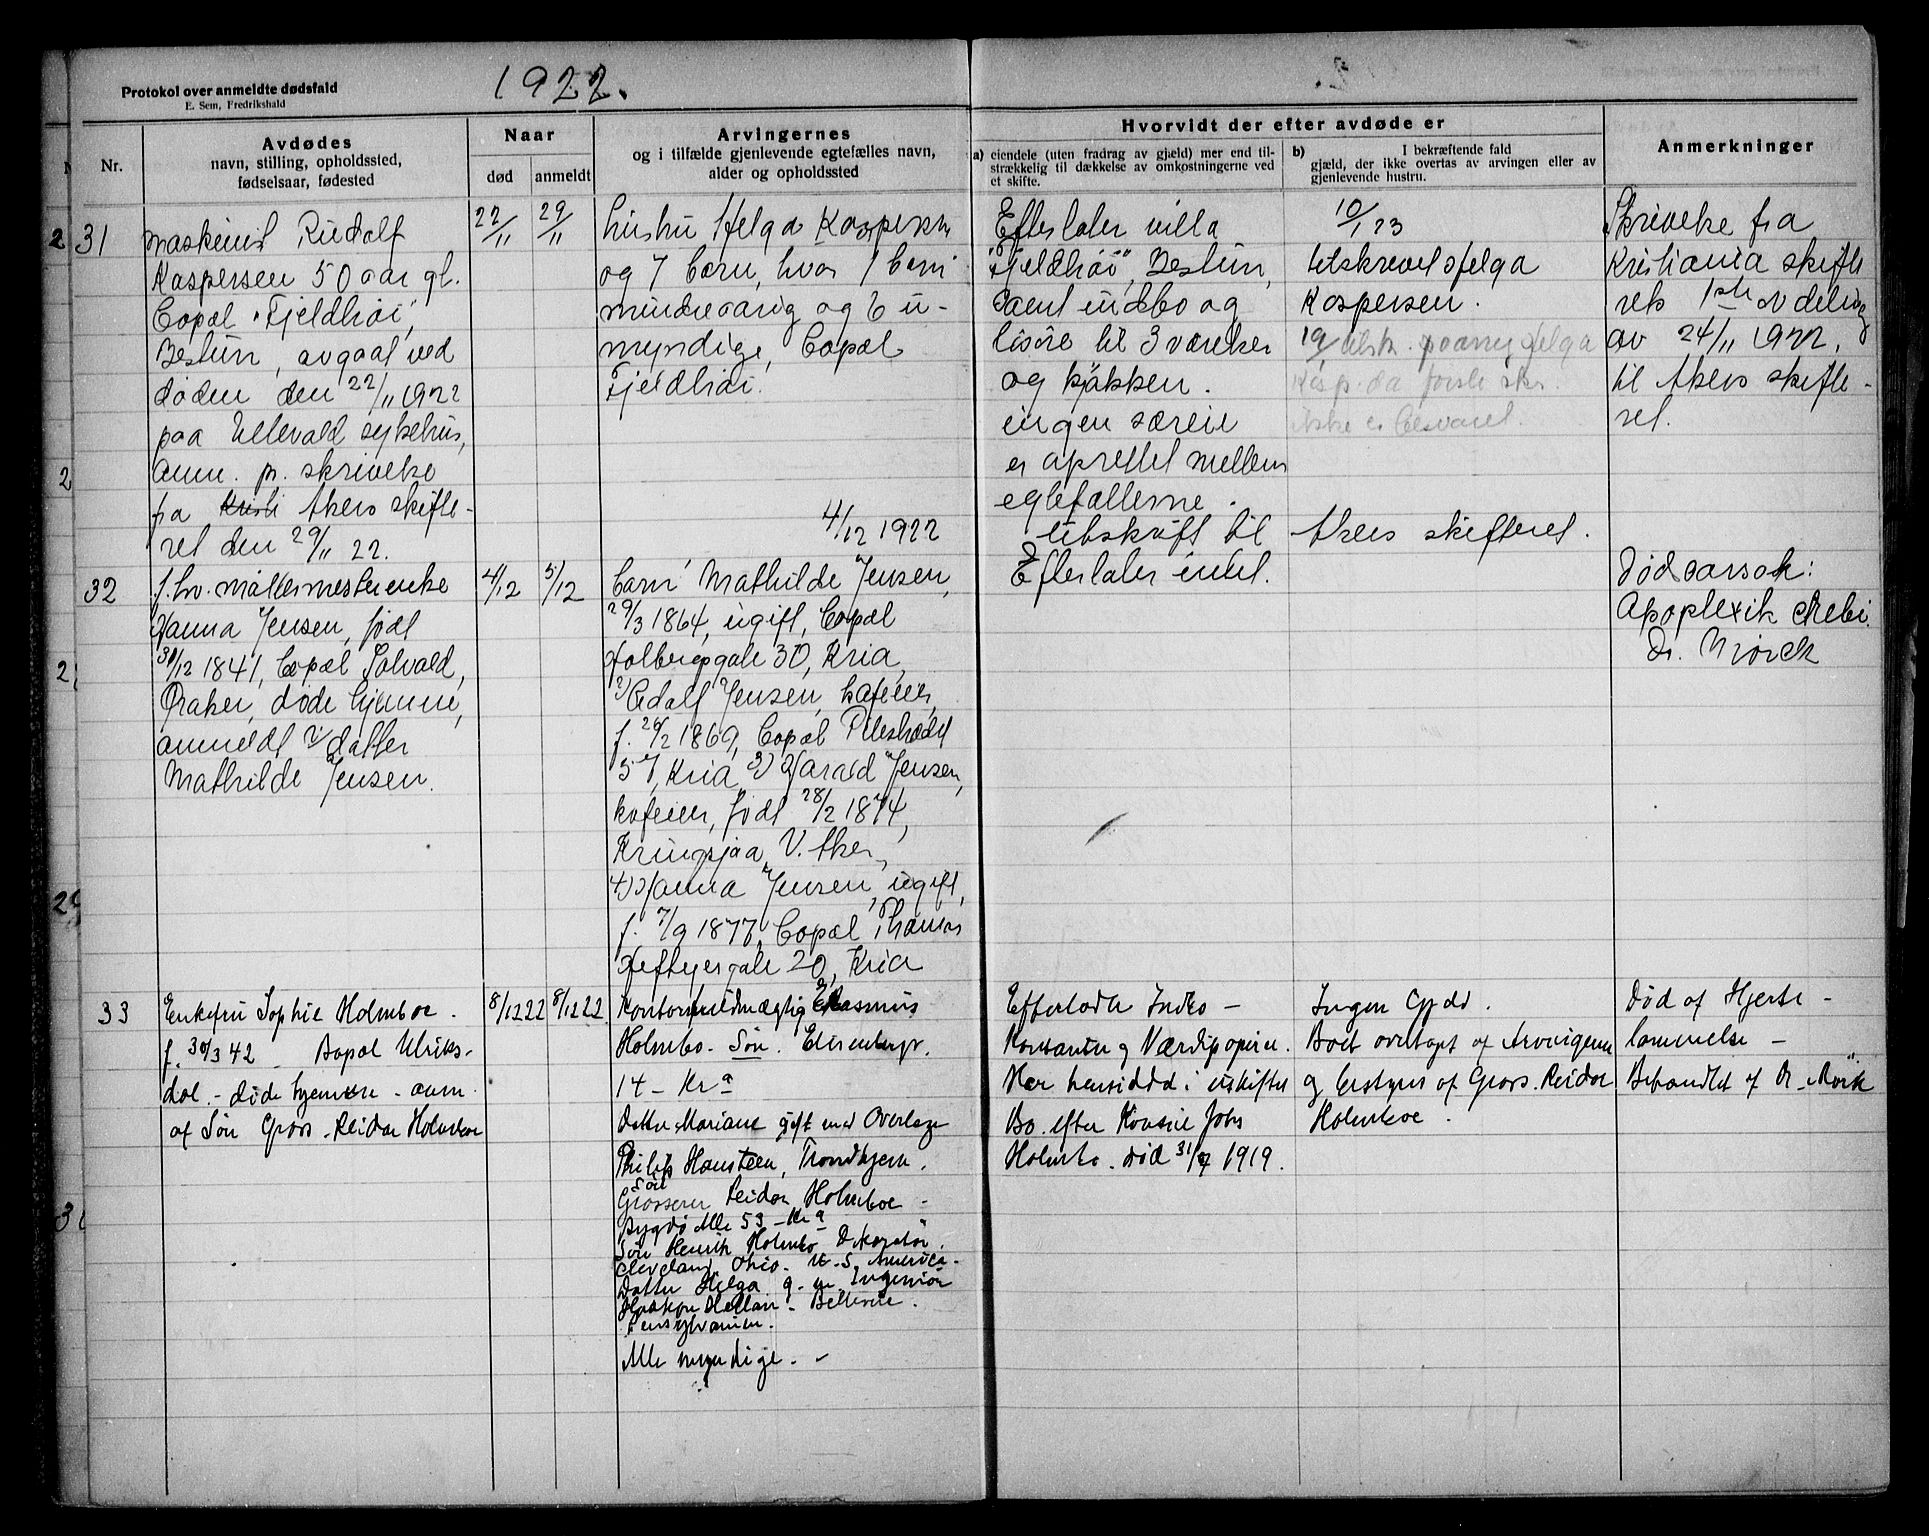 Protokol over anmeldte dødsfald
E. Sem, Fredrikshald
1922.
Nr.
Avdødes
navn, stilling, opholdssted,
fødselsaar, fødested
Naar
død
anmeldt
Arvingernes
og i tilfælde gjenlevende egtefælles navn,
alder og opholdssted
Hvorvidt der efter avdøde er
a) eiendele (uten fradrag av gjæld) mer end til-
strækkelig til dækkelse av omkostningerne ved
et skifte.
b) I bekræftende fald
gjæld, der ikke overtas av arvingen eller av
gjenlevende hustru.
Anmerkninger
31
maskinist Rudolf
Kaspersen 50 aar gl.
Bopæl "Fjeldhøi",
Bestun, avgaat ved
døden den 22/11 1922
paa Ullevold sykehus,
anm. pr. skrivelse
fra Kristi Akers skifte-
ret den 29/11 22.
22/11
29/11
hustru Helga Kaspersen
og 7 barn, hvor 1 barn
mindreaarig og 6 u-
myndige, Bopæl
Fjeldhøi.
4/12 1922
Efterlater villa
"Fjeldhøi", Bestun,
samt indbo og
løsøre til 3 værelser
og kjøkken.
ingen særeie
er oprettet mellem
egtefællerne.
utskrift til Akers skifteret.
10/1 23
tilskrevet Helga
Kaspersen.
19/ tilsk. paany Helga
Kasp. da første skr.
ikke er besvaret.
Skrivelse fra
Kristiania skifte
rets 1ste avdeling
av 24/11 1922,
til Akers skifte-
ret.
32
f. hv. malermesterenke
Hanna Jensen, født
30/12 1841, Bopæl Solvold,
Øraker, døde hjemme,
anmeldt v/ datter
Mathilde Jensen.
4/12
5/12
barn Mathilde Jensen,
29/3 1864, ugift, Bopæl
Holbergsgate 30, Kria,
2) Adolf Jensen, kafeeier,
f. 26/2 1869, Bopæl Pilestrædet
57, Kria 3) Harald Jensen,
kafeeier, født 28/2 1874,
Kringsjaa, V. Aker,
4) Hanna Jensen, ugift,
f. 7/9 1877, Bopæl Thomas
Heftyesgate 20, Kria
Efterlater intet.
Dødsarsak:
Apoplexik cerebri.
Dr. Mørck
33
Enkefru Sophie Holmboe.
f. 30/3 42 Bopæl Ulriks-
dal. - døde hjemme - anm.
af Søn Gross. Reidar Holmboe
8/12 22
8/12 22
Kontorfuldmægtig Erasmus
Holmbo. Søn. Eilersenbergv.
14 - Kra
Datter Mariane gift med Overlæge
Philip Hansteen, Trondhjem.
Søn
Grosserer Reidar Holmboe -
Bygdø Alle 53 - Kra
Søn Henrik Holmbo Dekoratør.
Cleveland, Ohio. U. S. America.
Datter Helga g. m. Ingeniør
Haakon Hellan - Bellevue.
Pensylvanien.
Alle myndige. -
Efterlodt Indbo -
Kontanter og Værdipapirer.
Har hensiddd i uskiftet
Bo. efter Konsul John
Holmbo. død 31/7 1919.
Ingen Gjæld.
Boet overtaget af Arvingerne
og bestyres af Gross. Reidar
Holmboe.
Død af Hjerte -
lammelse -
Behandlet af Dr. Mørk